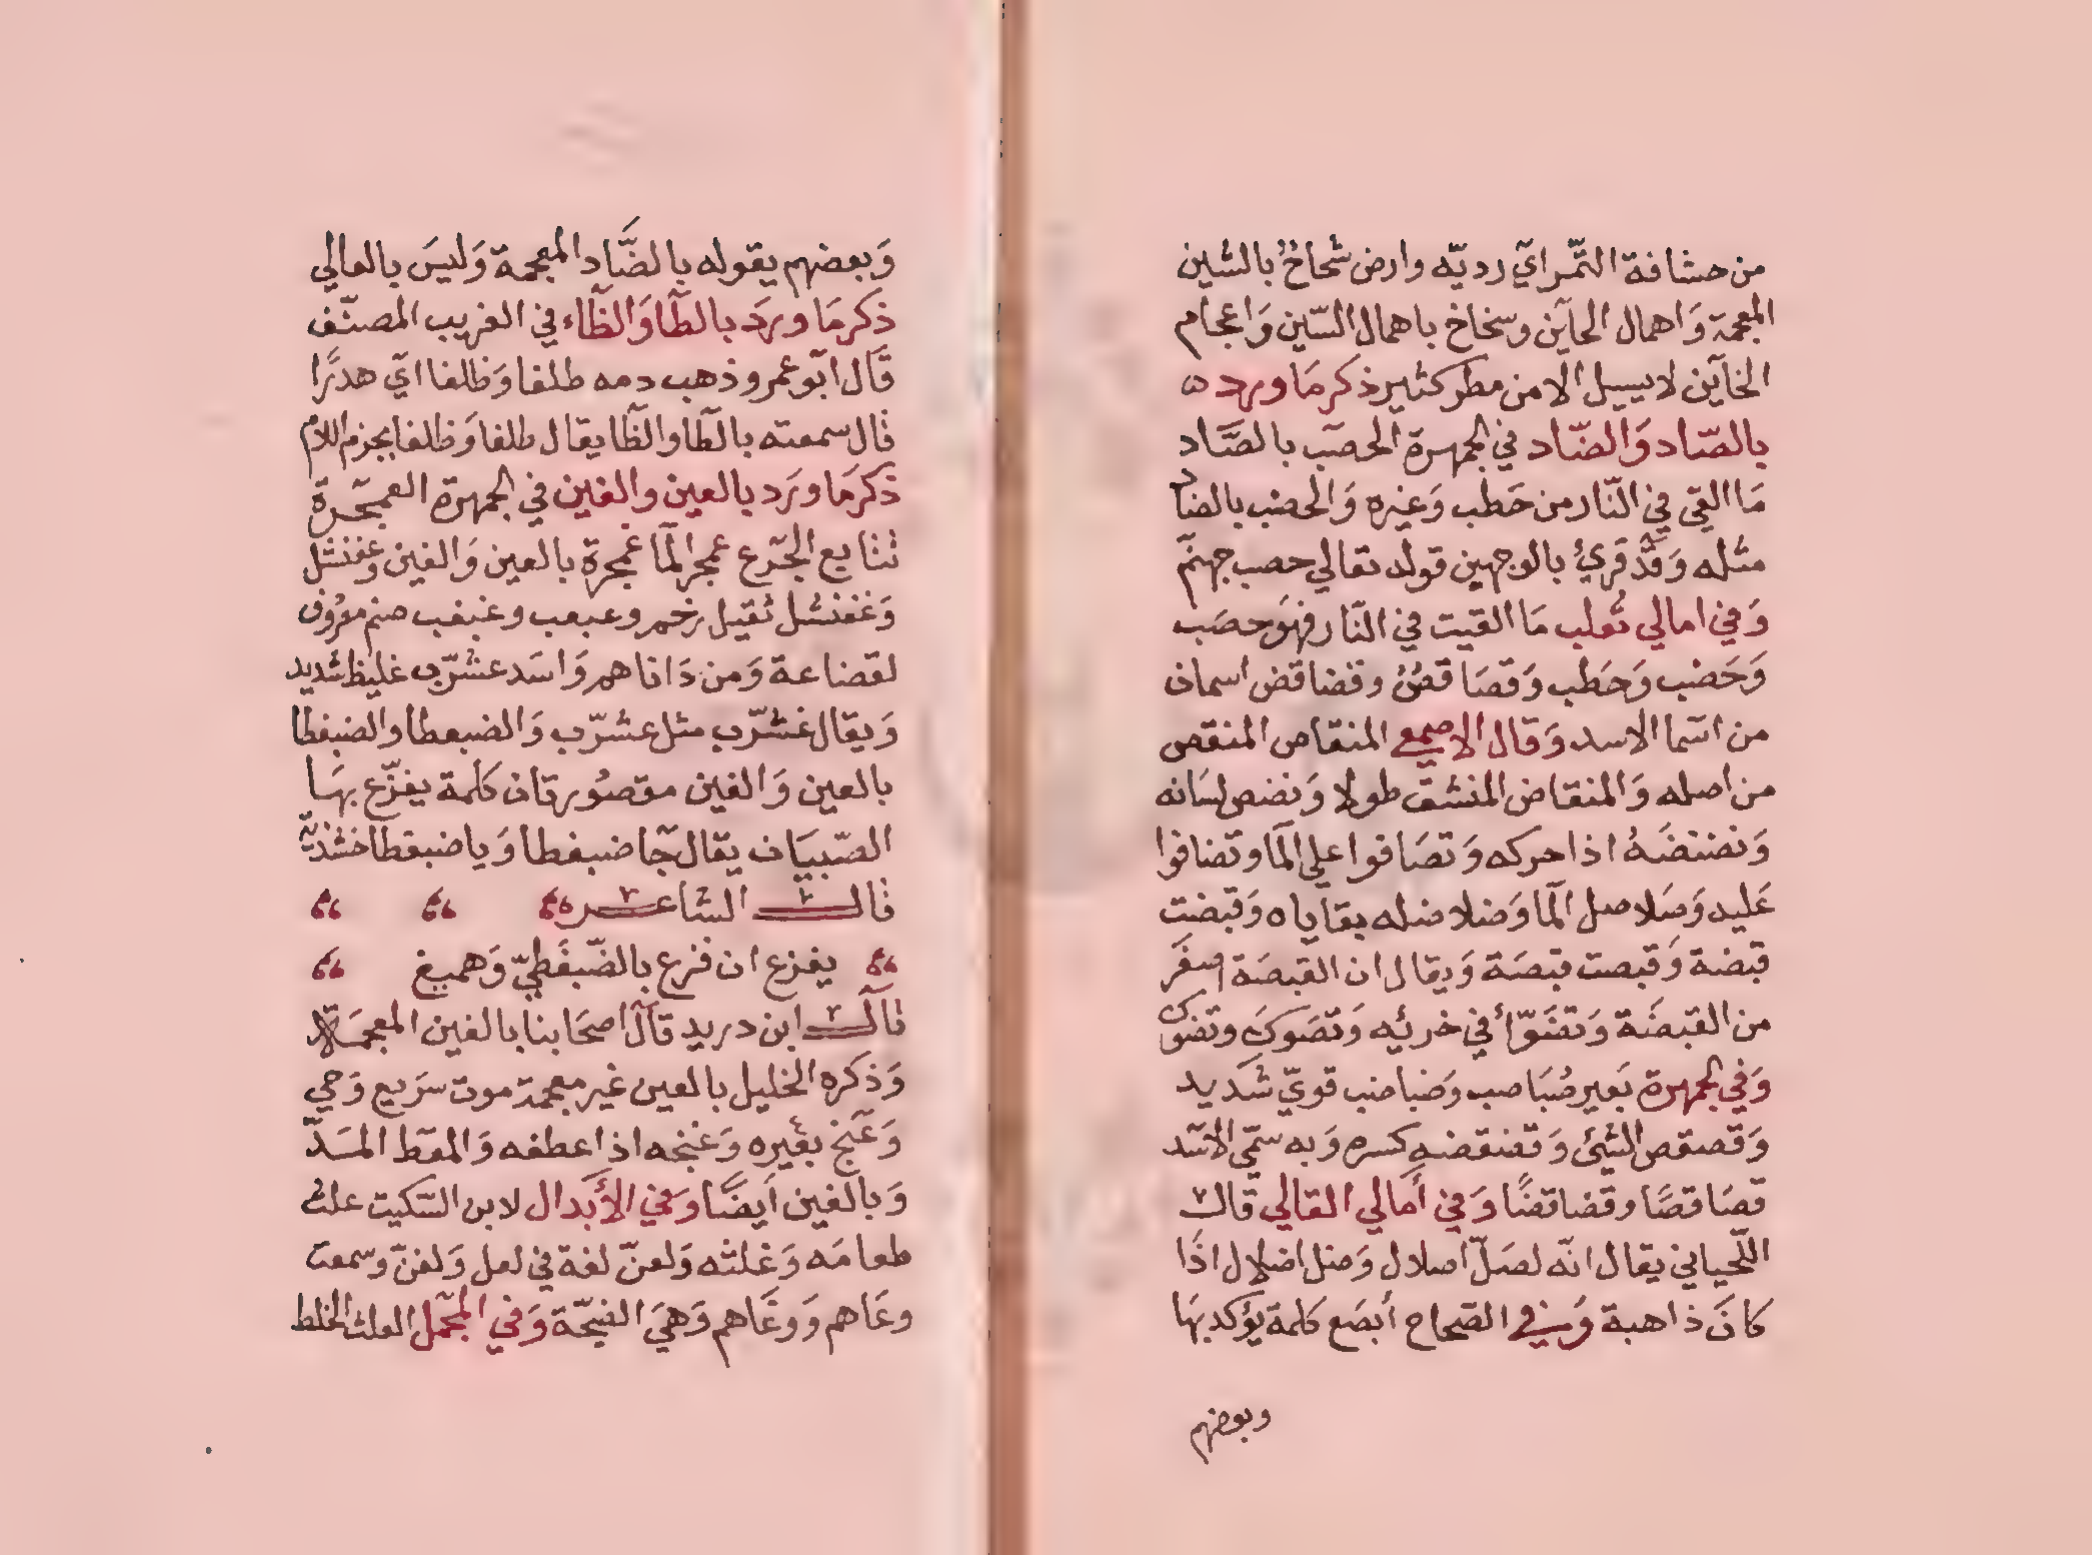 من حشافة التّمر ايّ رديّه وارض شحاحٌ بالشين
المعجمة وَاهمال الحآين وسخاخ باهمال السّين وَاعجام
الخآين لا يسيل الّا من مطر كثير ذكر مَا ورد ه
بالصّاد وَالضّاد في الجمهرة الحصب بالصَّاد
مَا القي في النّار من حَطب وَغيره وَالحضب بالضاد
مثله وَقَدْ قرئ بالوجهين قوله تعالي حصب جهنّم
وَفي امالي ثعلب مَا القيت في النّار فهوَ حصَب
وَحَضب وَحَطب وَقصَاقصٌ وقضاقض اسمان
من اسما الاسد وَقال الاصمعي المنقاص المنقعص
من اصله وَالمنقاض المنشق طولا وَنضنض لسَانه
وَنضنضَهُ اذا حركه وَتصَافوا علي المآ وتضافوا
عَليه وَصَلاصل المآ وَضلاضله بقاياه وَقبضت
قبضة وَقبصت قبصَة وَيقال ان القبصَة اصغَر
من القبضَة وَتضَوّأ في خرئه وَتصَوكَ وتضوك
وَفي الجمهرة بَعير صُبَاصب وَضباضب قويّ شَديد
وَقصقص الشيَئ وَقضقضه كسره وَبه سمّي الاسَد
قصَاقصًا وقضاقضًا وَفي أمَالي القالي قال
اللّحياني يقال انّه لصَلّ اصلال وَضل اضلال اذَا
كانَ ذاهبة وَفي الصّحاح أبصَع كلمة يؤكد بهَا
وبعضهم
وَبعضهم يقوله بالضَّاد المعجمة وَليسَ بالعالي
ذكر مَا ورَد بالطَآ وَالظَّاء في الغريب المصنّف
قَال ابَو عمرو ذهب دمه طلفا وَظلفا ايّ هدرًا
قال سمعته بالطآ والظَآ يقال طلفا وَظلفا بجزم اللام
ذكر مَا ورَد بالعين والغين في الجمهرة العمجَرة
تتابع الجَرع عمجر المآ غمجرة بالعين وَالغين وعفنشل
وَغفنشل ثقيل رخم وعبعب وغبغب صنم معرُوف
لقضاعة وَمن دَاناهم وَاسَد عشرّب غليظ شديد
وَيقال غشرّب مثل عشرّب وَالضبعطا والضبغطا
بالعين وَالغين مقصُورتان كلمة يفزّع بهَا
الصّبيَان يقال جَآ ضبغطا وَيا ضبغطا خشذيه
قال الشاعر
يفزع ان فزع بالضّبغَطيّ وَهميغ
قال ابن دريد قَال اصحَابنا بالغين المعجمَة
وَذكره الخليل بالعين غير معجمة موت سرَيع وَحي
وَعَنج بعَيره وَغنجه اذا عطفه وَالمعَط المَدّ
وَبالغين اَيضًا وَفي الأبَدال لابن السّكيت علث
طعامَه وَغلثه وَلعنّ لغة في لعل وَلغنّ وسمعت
وعَاهم وَوغَاهم وَهيَ الضيحّة وَفي المجمَل العلث الخلط